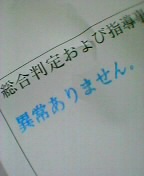 総合判定および指導
異常ありません。